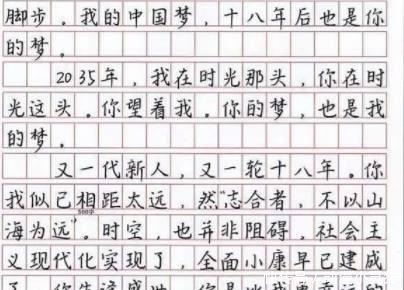 脚步。我的中国梦，十八年后也是你
的梦。
2035年，我在时光那头，你在时
光这头。你望着我。你的梦，也是我
的梦。
又一代新人，又一轮十八年。你
我似已相距太远，然“志合者，不以山
500字
海为远”。时空，也并非阻碍，社会主
义现代化实现了，全面小康早已建成
了